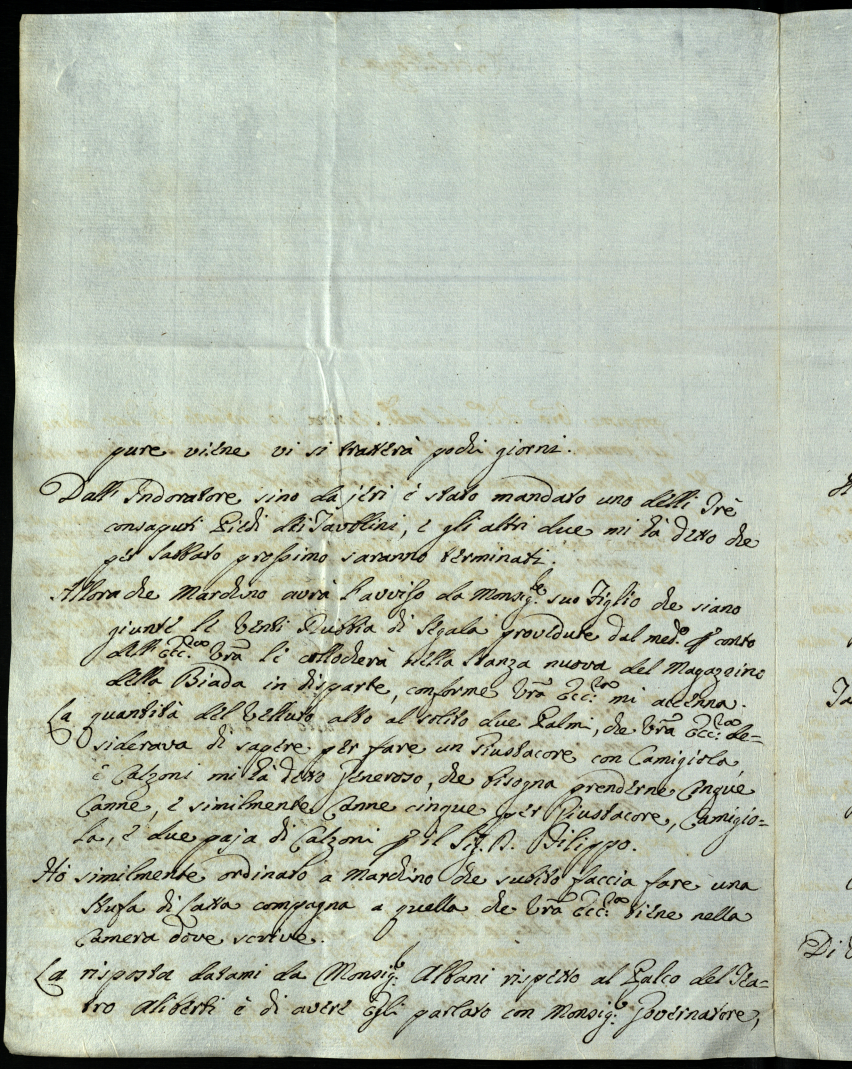 pure viene vi si tratterà pochi giorni.
Dall' Indoratore sino da jeri è stato mandato uno delli Trè
consaputi Piedi dei Tavolini, e gli altri due mi hà detto che
per Sabbato prossimo saranno terminati.
Allora che Marchino avrà l'avviso da Monsig.re suo Figlio che siano
giunte le venti Rubbia di Segala provedute dal med.o p conto
dell' Ecc.za Vrã le collocherà nella stanza nuova del Magazzino
della Biada in disparte, conforme Vrã Ecc.za mi accenna.
La quantità del Velluto alto al solito due Palmi, che Vrã Ecc.za de=
siderava di sapere per fare un Giustacore con Camigiola,
e Calzoni mi hà detto Generoso, che bisogna prenderne Cinque
Canne, e similmente Canne cinque per Giustacore, Camigio=
la, e due paja di Calzoni p il Sig. D. Filippo.
Hò similmente ordinato a Marchino che subito faccia fare una
Stufa di Latta compagna a quella che Vrã Ecc.za tiene nella
Camera dove scrive.
La risposta datami da Monsig.re Albani rispetto al Palco del Tea=
tro Aliberti è di avere Egli parlato con Monsig.re Governatore,
Di